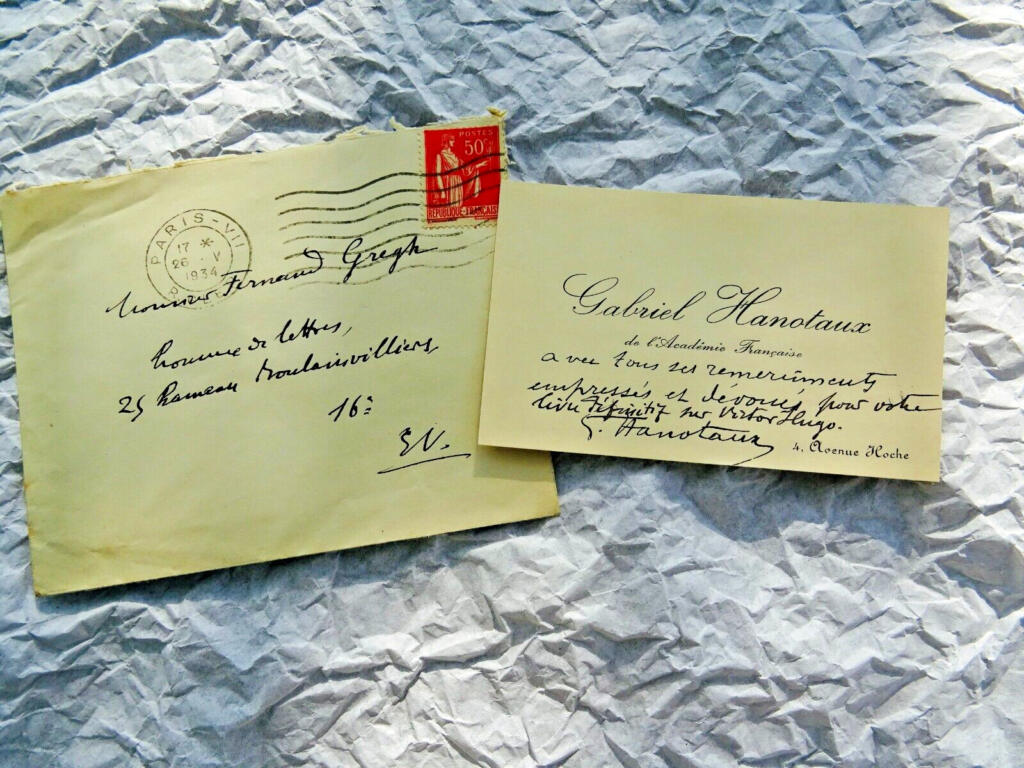 POSTES
50c
REPUBLIQUE-FRANÇAISE
PARIS-VII
17 *
26 · V
1934
Monsieur Fernand Gregh
homme de lettres,
25 hameau Boulainvilliers
16e
E.V.
Gabriel Hanotaux
de l'Académie Française
avec tous ses remerciments
empressés et dévoués pour votre
livre définitif sur Victor Hugo.
G. Hanotaux
4, Avenue Hoche